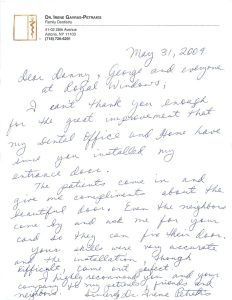 DR. IRENE GAVRAS-PETRAKIS
Family Dentistry
41-02 28th Avenue
Astoria, NY 11103
(718) 726-6291
May 31, 2009
Dear Danny, George and everyone
at Royal Windows,
I can't thank you enough
for the great improvement that
my Dental Office and Home have
since you installed my
entrance door.
The patients come in and
give me compliments about the
beautiful door. Even the neighbors
come by and ask me for your
card so they can fix their door.
Your skills were very accurate
and the installation, though
difficult, came out perfect.
I highly recommend you and your
company to my patients, friends and
neighbors. Sincerely, Dr. Irene